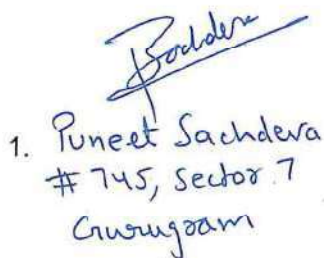 1. Puneet Sachdeva
# 745, Sector 7
Gurugram